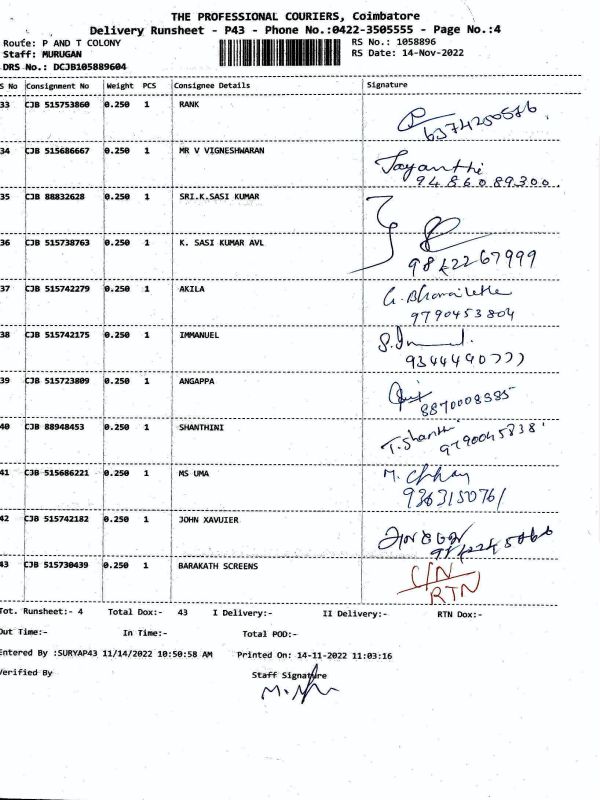 THE PROFESSIONAL COURIERS, Coimbatore
Delivery Runsheet - P43 - Phone No.:0422-3505555 - Page No.:4
Route: P AND T COLONY RS No.: 1058896
Staff: MURUGAN RS Date: 14-Nov-2022
DRS No.: DCJB105889604
S No Consignment No Weight PCS Consignee Details Signature
33 CJB 515753860 0.250 1 RANK
6374200586
34 CJB 515686667 0.250 1 MR V VIGNESHWARAN Jayanthi
9486089300
35 CJB 88832628 0.250 1 SRI.K.SASI KUMAR
36 CJB 515738763 0.250 1 K. SASI KUMAR AVL
9842267999
37 CJB 515742279 0.250 1 AKILA
9790453804
38 CJB 515742175 0.250 1 IMMANUEL
9344490777
39 CJB 515723809 0.250 1 ANGAPPA
8870008585
40 CJB 88948453 0.250 1 SHANTHINI T. Shanthi
9790045838
41 CJB 515686221 0.250 1 MS UMA
9363150761
42 CJB 515742182 0.250 1 JOHN XAVUIER
43 CJB 515730439 0.250 1 BARAKATH SCREENS C/N
RTN
Tot. Runsheet:- 4 Total Dox:- 43 I Delivery:- II Delivery:- RTN Dox:-
Out Time:- In Time:- Total POD:-
Entered By :SURYAP43 11/14/2022 10:50:58 AM Printed On: 14-11-2022 11:03:16
Verified By Staff Signature